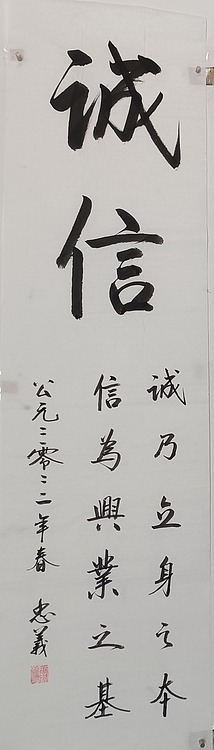 诚信
诚乃立身之本
信为興業之基
公元二零二二年春 忠義